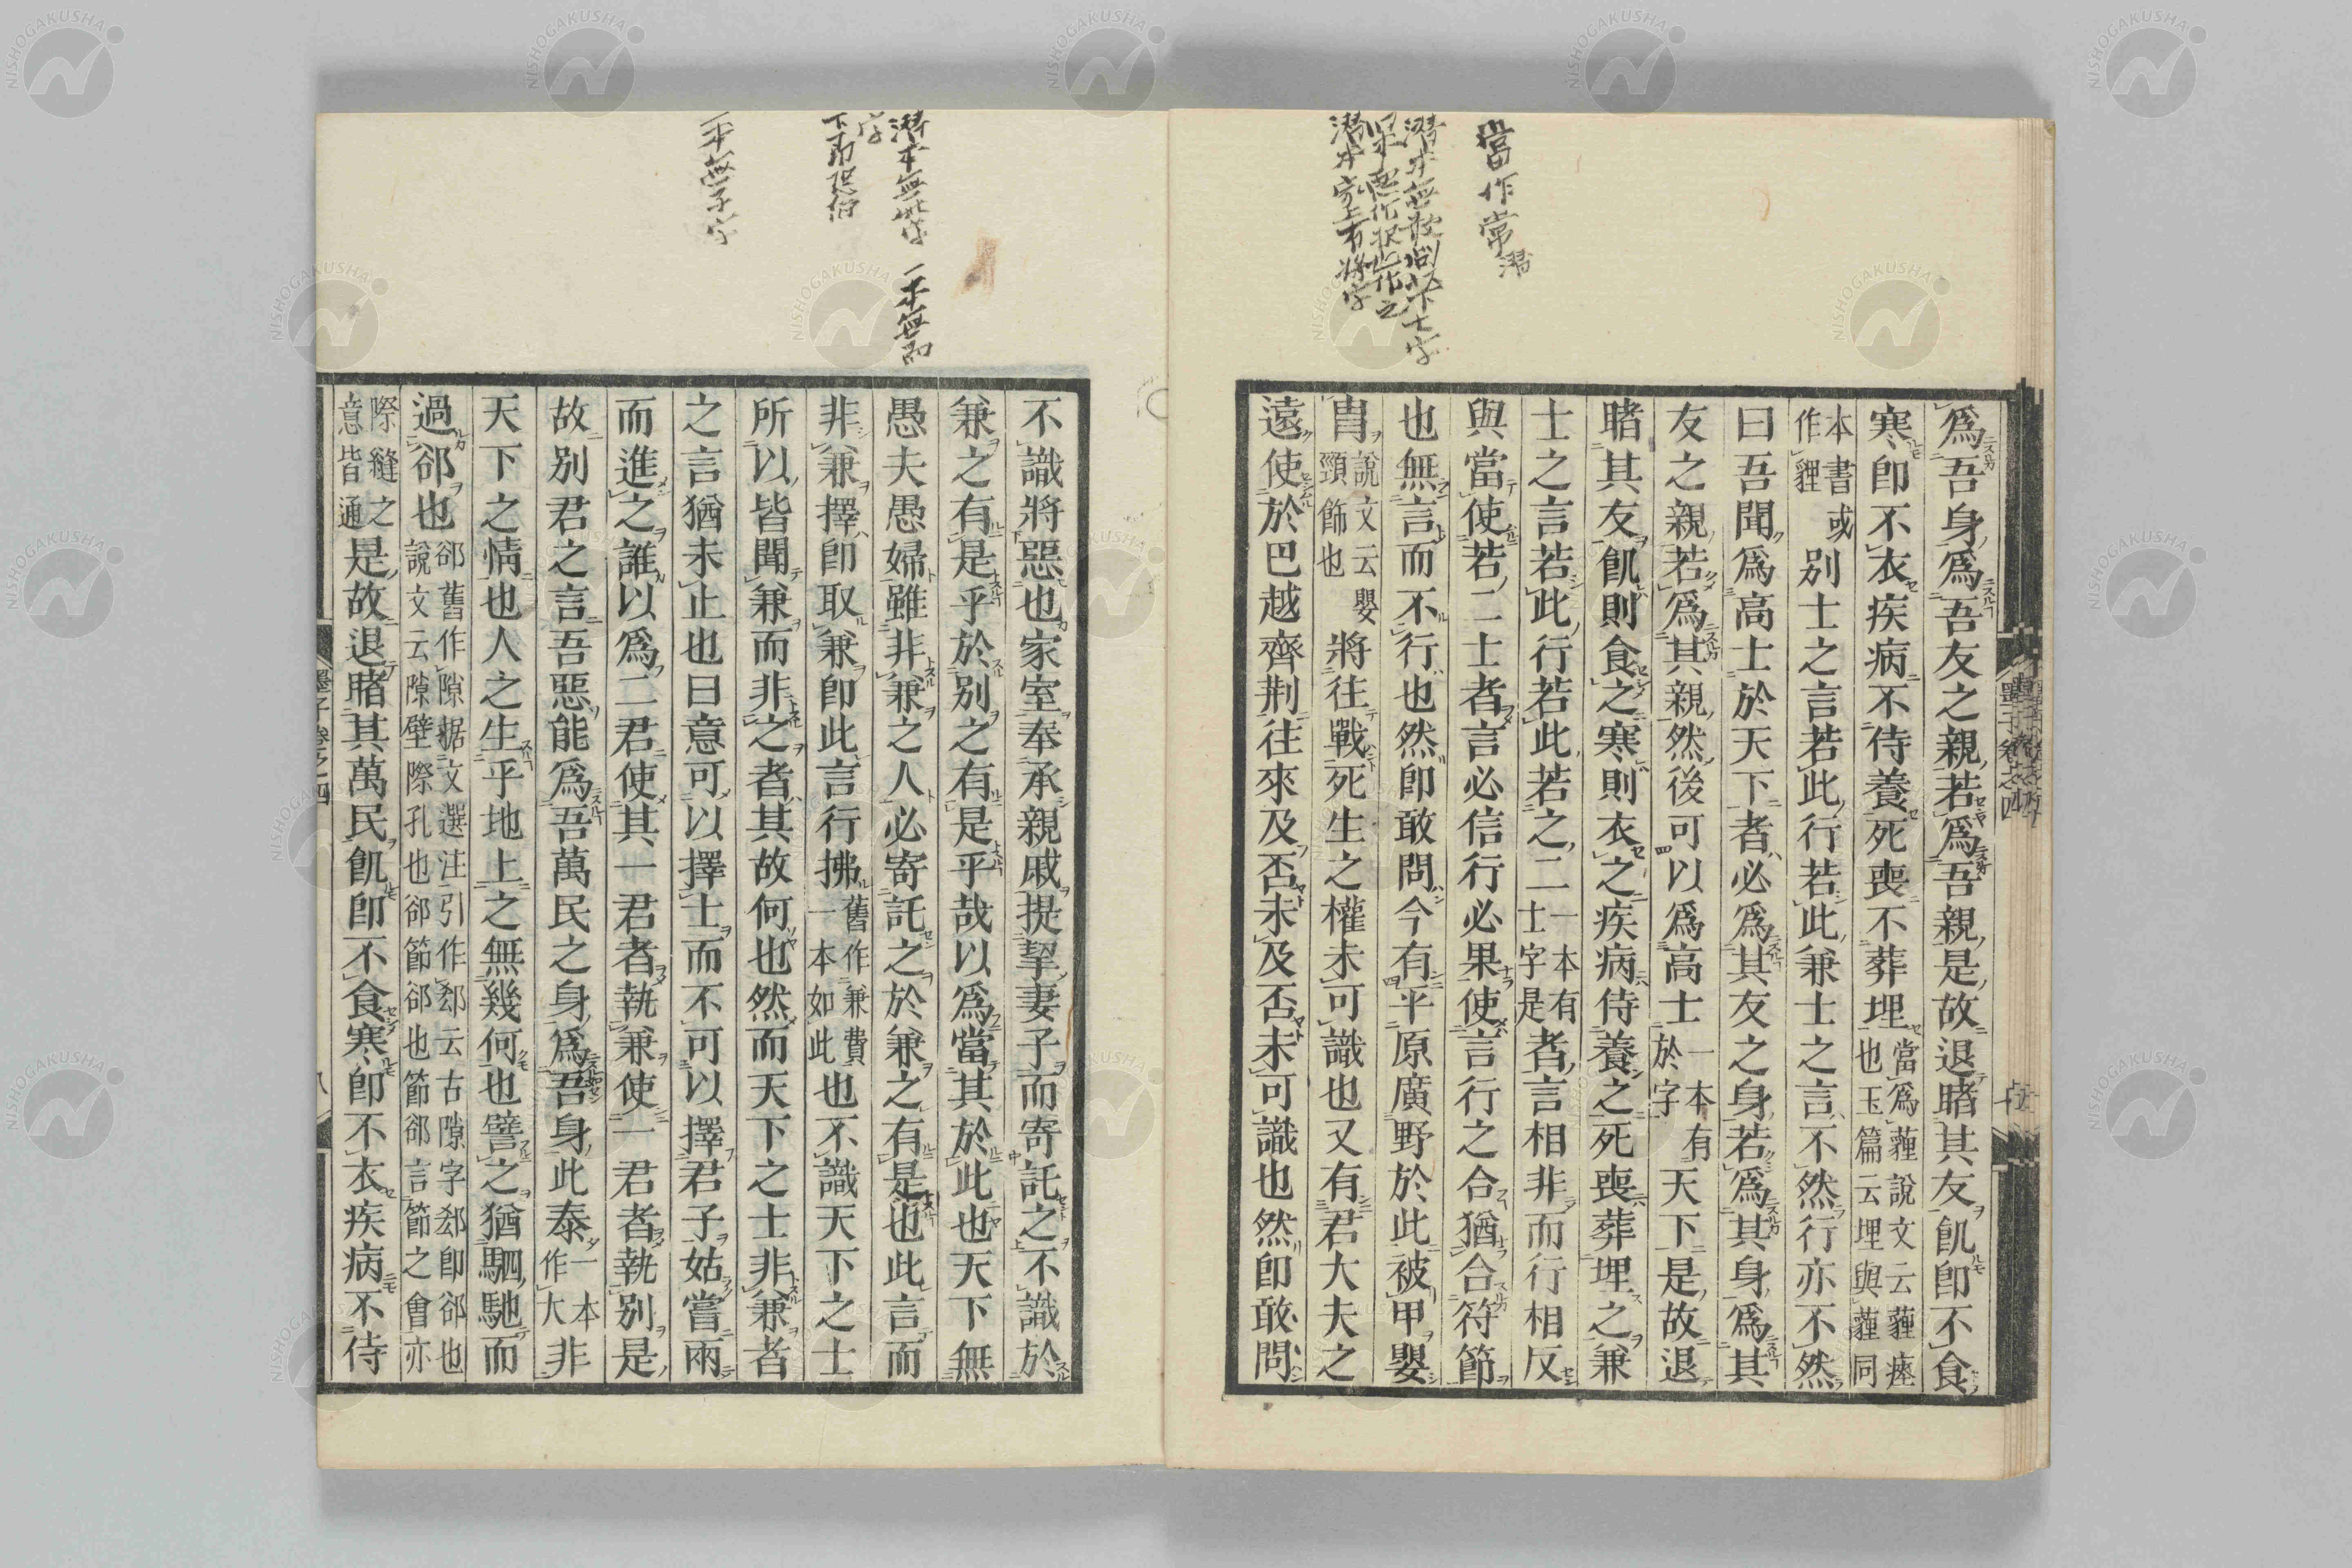 當作常潛
潛本無敢問以下七字
潛本家上有將字
爲吾身爲吾友之親若爲吾親是故退睹其友飢卽不食
寒卽不衣疾病不待養死喪不葬埋當爲薶說文云薶瘞也玉篇云埋與薶同
本書或作貍別士之言若此行若此兼士之言不然行亦不然
曰吾聞爲高士於天下者必爲其友之身若爲其身爲其
友之親若爲其親然後可以爲高士一本有於字天下是故退
睹其友飢則食之寒則衣之疾病侍養之死喪葬埋之兼
士之言若此行若此若之二一本有士字是者言相非而行相反
與當使若二士者言必信行必果使言行之合猶合符節
也無言而不行也然卽敢問今有平原廣野於此被甲嬰
胄說文云嬰頸飾也將往戰死生之權未可識也又有君大夫之
遠使於巴越齊荆往來及否未及否未可識也然卽敢問
墨子卷之四
潛本無此字
字
一本無而
一本無子字
不識將惡也家室奉承親戚提挈妻子而寄託之不識於
兼之有是乎於別之有是乎哉以爲當其於此也天下無
愚夫愚婦雖非兼之人必寄託之於兼之有是也此言而
非兼擇卽取兼卽此言行拂舊作兼費一本如此也不識天下之士
所以皆聞兼而非之者其故何也然而天下之士非兼者
之言猶未止也曰意可以擇士而不可以擇君子姑嘗兩
而進之誰以爲二君使其一君者執兼使一君者執別是
故別君之言吾惡能爲吾萬民之身爲吾身此泰一本作大非
天下之情也人之生乎地上之無幾何也譬之猶駟馳而
過郤也郤舊作隙据文選注引作郄云古隙字郄卽郤也說文云隙壁際孔也郤節郤也節郤言節之會亦
際縫之意皆通是故退睹其萬民飢卽不食寒卽不衣疾病不待
墨子卷之四
八